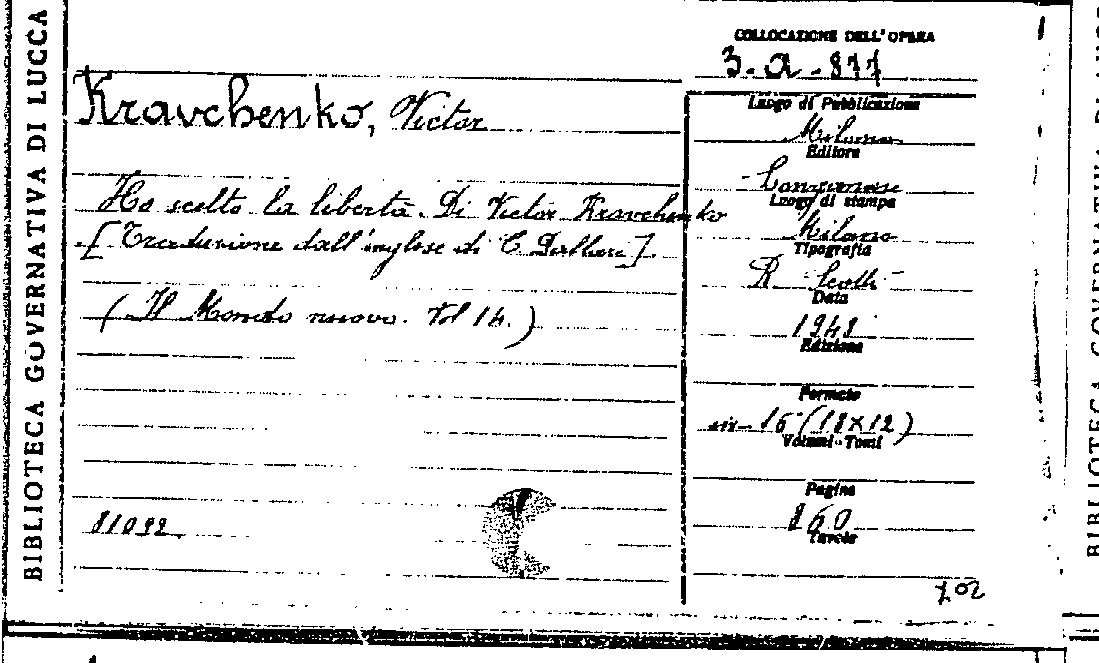 BIBLIOTECA GOVERNATIVA DI LUCCA
COLLOCAZIONE DELL'OPERA
3.a.877
Kravchenko, Victor
Luogo di Pubblicazione
Milano
Editore
Longanesi
Ho scelto la libertà. Di Victor Kravchenko
Luogo di stampa
Milano
[Traduzione dall'inglese di C.
Tipografia
R Scotti
Data
(Il Mondo nuovo. Vol 14.)
1948
Edizione
Formato
in-16 (18x12)
Volumi-Tomi
Pagine
860
81092
Tavole